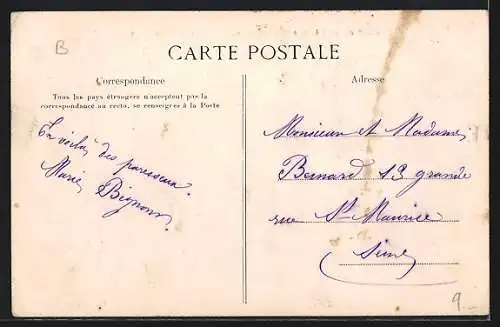 B
CARTE POSTALE
Correspondance
Tous les pays étrangers n'acceptent pas la
correspondance au recto, se renseigner à la Poste
En voilà des paresseux.
Marie Bignon
Adresse
Monsieur et Madame
Bernard 13 grande
rue St Maurice
Seine
9